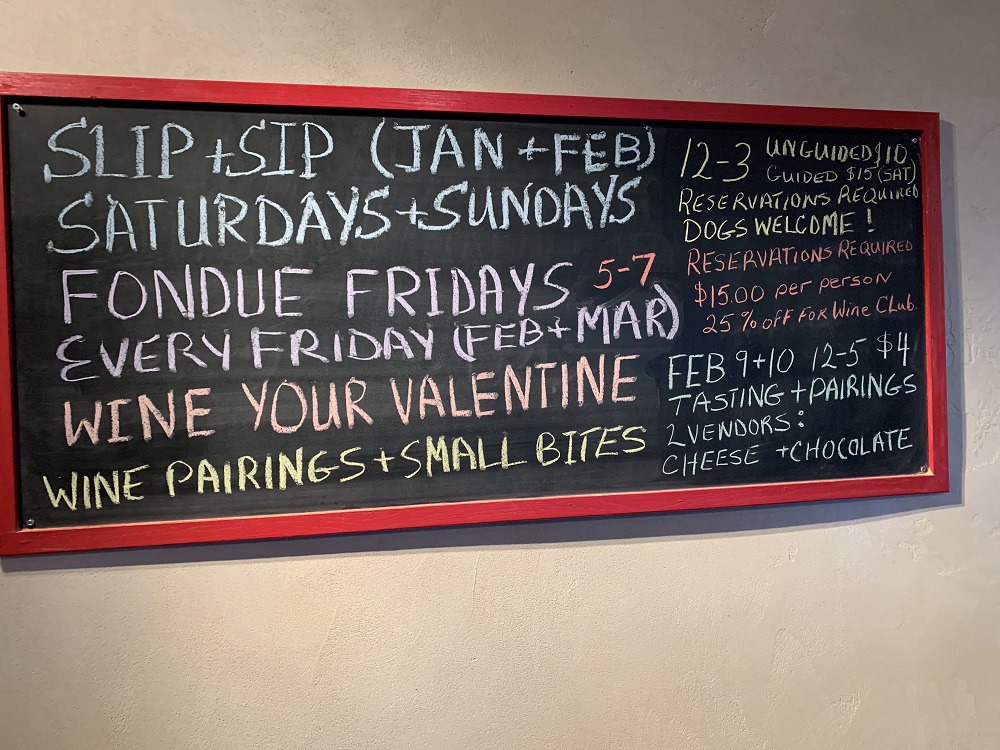 SLIP + SIP (JAN + FEB)
SATURDAYS + SUNDAYS
FONDUE FRIDAYS 5-7
EVERY FRIDAY (FEB + MAR)
WINE YOUR VALENTINE
WINE PAIRINGS + SMALL BITES
12-3 UNGUIDED $10
GUIDED $15 (SAT)
RESERVATIONS REQUIRED
DOGS WELCOME!
RESERVATIONS REQUIRED
$15.00 per person
25% off For Wine Club.
FEB 9+10 12-5 $4
TASTING + PAIRINGS
2 VENDORS:
CHEESE + CHOCOLATE